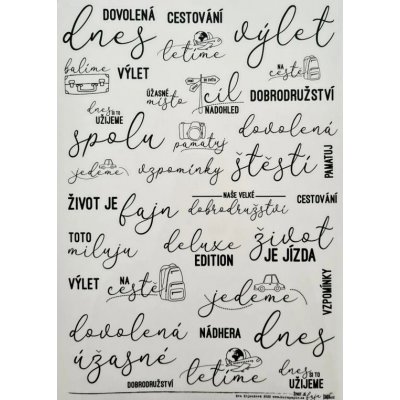 DOVOLENÁ
CESTOVÁNÍ
dnes
letíme
výlet
balíme
VÝLET
NA
cestě
ÚŽASNÉ
místo
cíl
NADOHLED
DOBRODRUŽSTVÍ
dnes
SI TO
UŽIJEME
spolu
pamatuj
dovolená
štěstí
PAMATUJ
jedeme
vzpomínky
ŽIVOT JE
fajn
NAŠE VELKÉ
dobrodružství
CESTOVÁNÍ
TOTO
miluju
deluxe
EDITION
život
JE JÍZDA
VÝLET
NA
cestě
jedeme
VZPOMÍNKY
dovolená
NÁDHERA
dnes
úžasné
DOBRODRUŽSTVÍ
letíme
dnes
SI TO
UŽIJEME